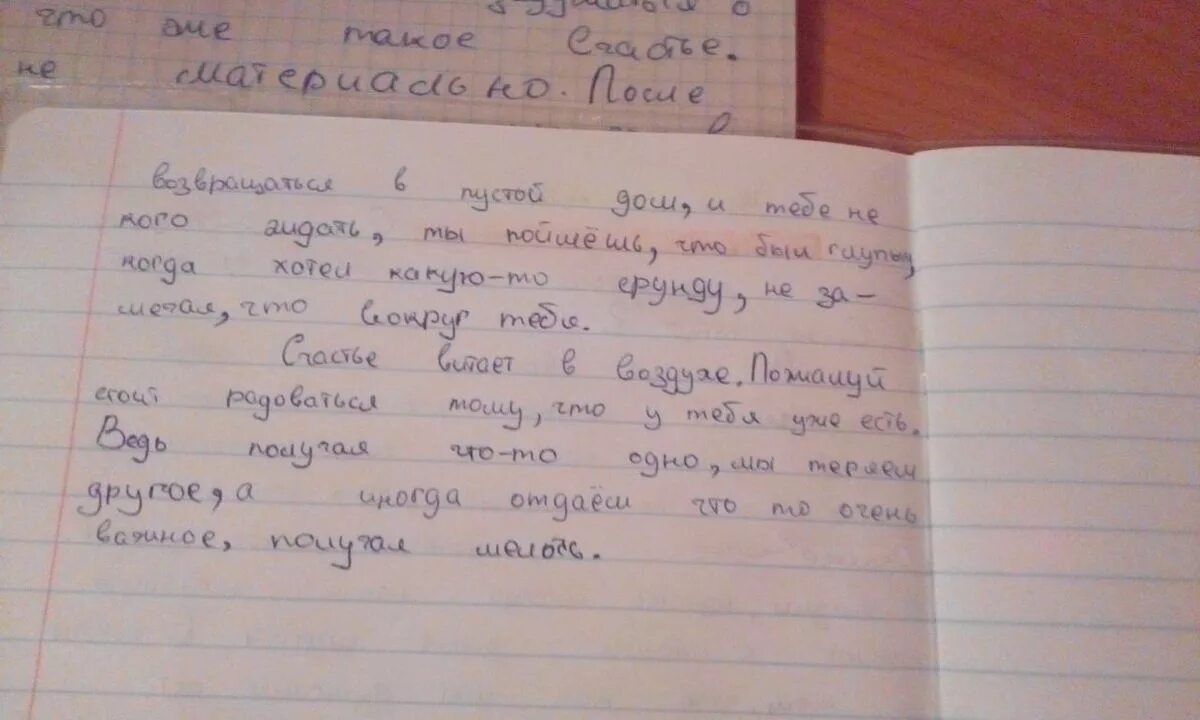 что же такое Счастье.
не материально. После
возвращаться в пустой дом, и тебе не
кого жидать, ты поймёшь, что был глупым,
когда хотел какую-то ерунду, не за-
мечая, что вокруг тебя.
Счастье витает в воздухе. Пожалуй
стоит радоваться тому, что у тебя уже есть.
Ведь получая что-то одно, мы теряем
другое, а иногда отдаём что то очень
важное, получая мелочь.